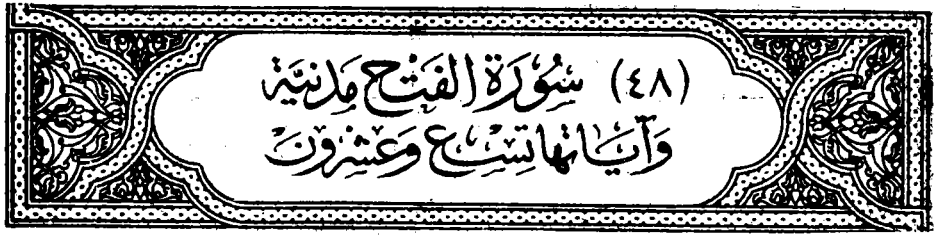 (٤٨) سُورَة الفَتْح مَدَنِيَّة
وَآيَاتهَا تِسْع وَعِشْرُونَ